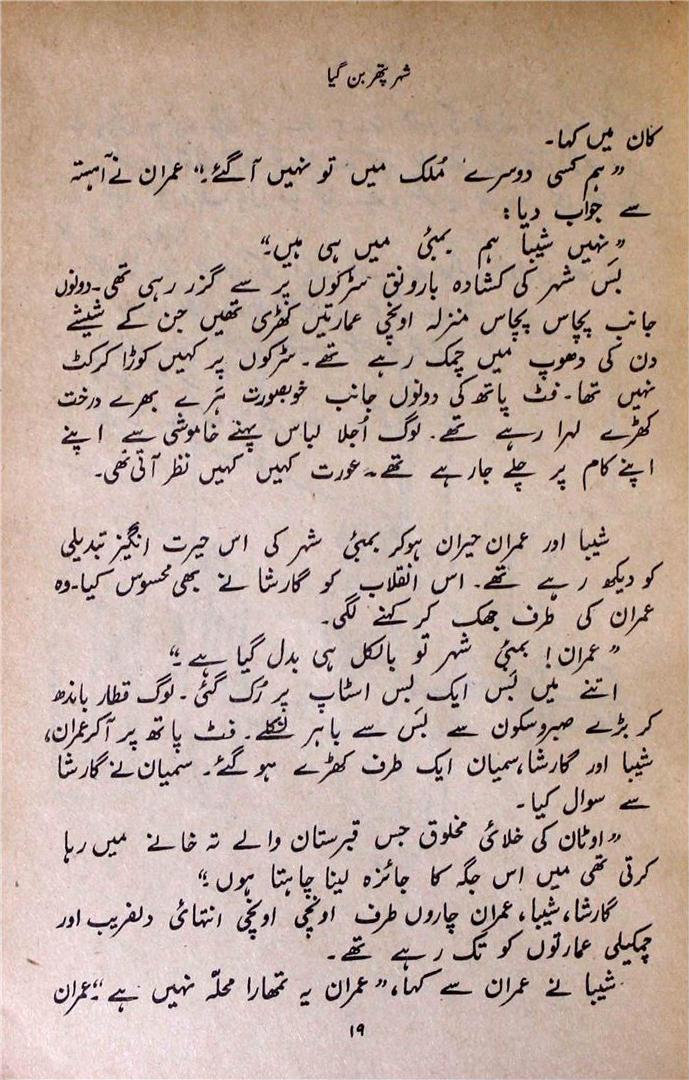 شہر پتھر بن گیا
کان میں کہا۔
”ہم کسی دوسرے مُلک میں تو نہیں آ گئے؟“ عمران نے آہستہ
سے جواب دیا:
”نہیں شیبا ہم بمبئی میں ہی ہیں۔“
بَس شہر کی کشادہ بارونق سڑکوں پر سے گزر رہی تھی۔ دونوں
جانب پچاس پچاس منزلہ اونچی عمارتیں کھڑی تھیں جن کے شیشے
دن کی دھوپ میں چمک رہے تھے۔ سڑکوں پر کہیں کوڑا کرکٹ
نہیں تھا۔ فٹ پاتھ کی دونوں جانب خوبصورت ہرے بھرے درخت
کھڑے لہرا رہے تھے۔ لوگ اُجلا لباس پہنے خاموشی سے اپنے
اپنے کام پر چلے جا رہے تھے۔ عورت کہیں کہیں نظر آتی تھی۔
شیبا اور عمران حیران ہوکر بمبئی شہر کی اس حیرت انگیز تبدیلی
کو دیکھ رہے تھے۔ اس انقلاب کو گارشا نے بھی محسوس کیا۔ وہ
عمران کی طرف جھک کر کہنے لگی۔
”عمران! بمبئی شہر تو بالکل ہی بدل گیا ہے۔“
اتنے میں بَس ایک بَس اسٹاپ پر رُک گئی۔ لوگ قطار باندھ
کر بڑے صبر و سکون سے بَس سے باہر نکلے۔ فٹ پاتھ پر آ کر عمران،
شیبا اور گارشا، سمیان ایک طرف کھڑے ہو گئے۔ سمیان نے گارشا
سے سوال کیا۔
”اوٹان کی خلائی مخلوق جس قبرستان والے تہ خانے میں رہا
کرتی تھی میں اس جگہ کا جائزہ لینا چاہتا ہوں۔“
گارشا، شیبا، عمران چاروں طرف اونچی اونچی انتہائی دلفریب اور
چمکیلی عمارتوں کو تک رہے تھے۔
شیبا نے عمران سے کہا، ”عمران یہ تمھارا محلّہ نہیں ہے۔“ عمران
۱۹